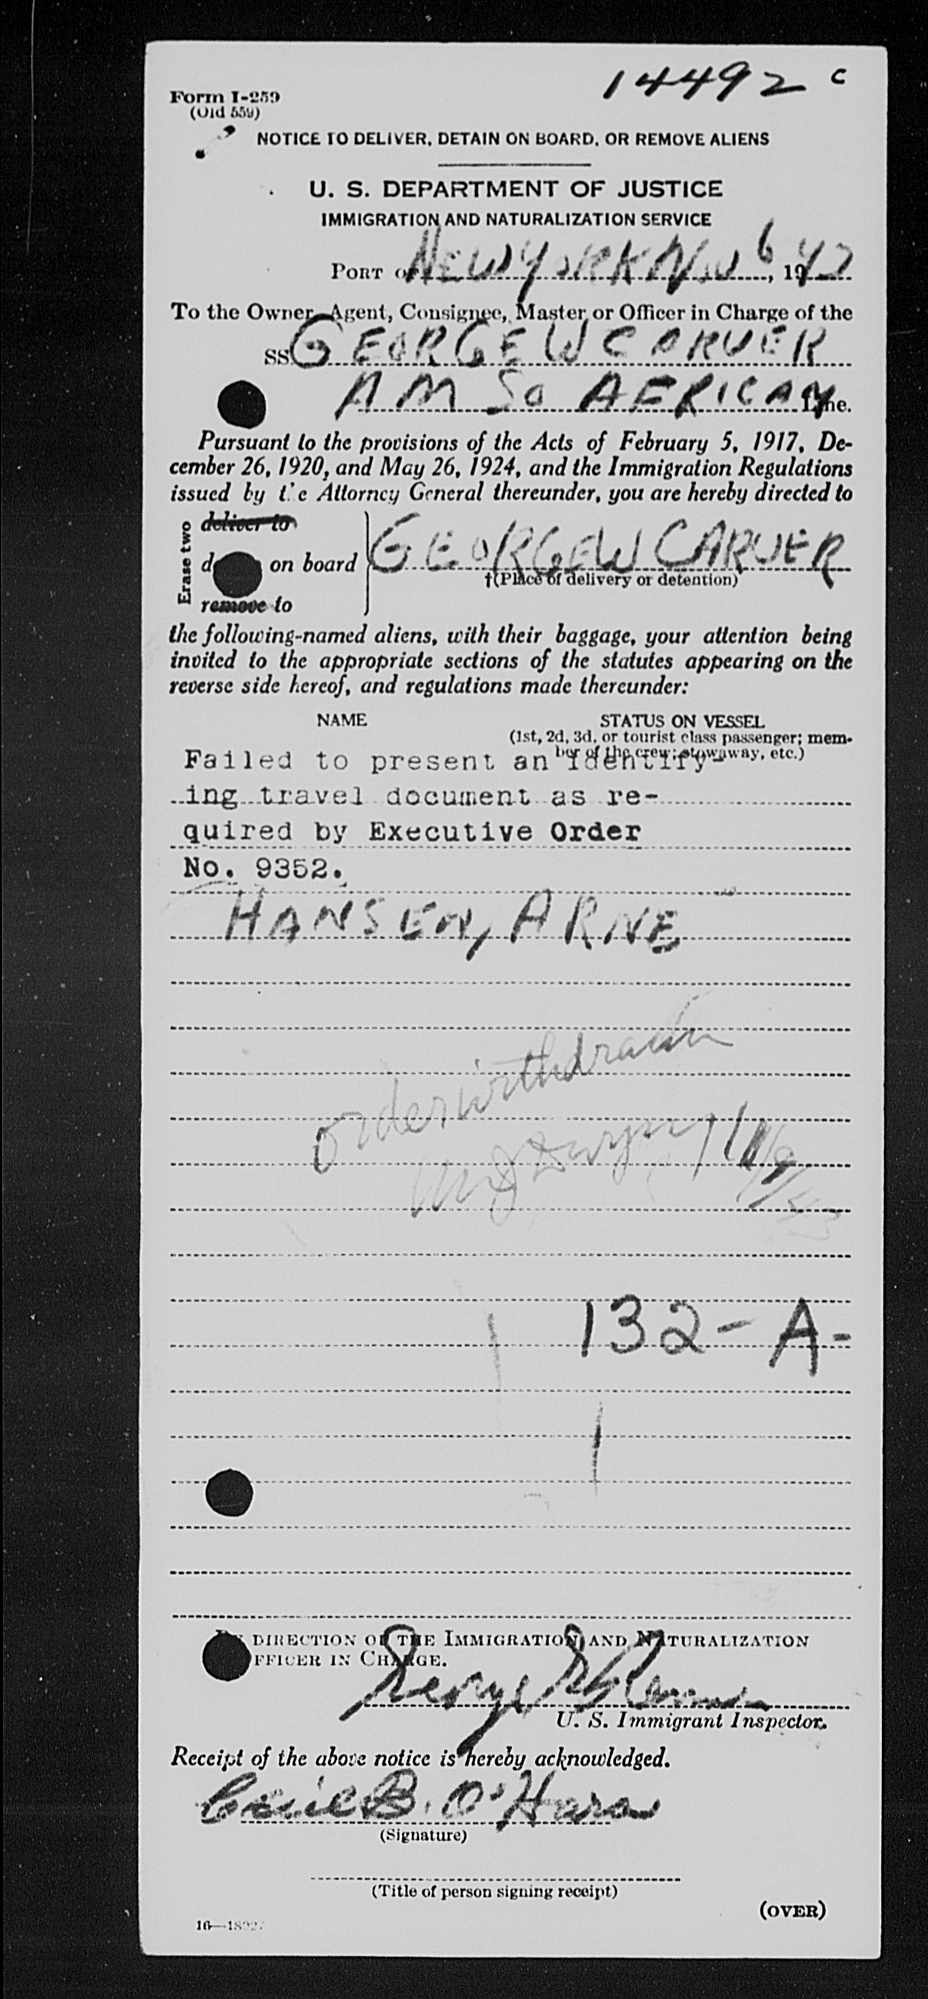 14492 c
Form I-259
(Old 559)
NOTICE TO DELIVER, DETAIN ON BOARD, OR REMOVE ALIENS
U. S. DEPARTMENT OF JUSTICE
IMMIGRATION AND NATURALIZATION SERVICE
PORT OF NEW YORK NOV 6, 1943
To the Owner, Agent, Consignee, Master or Officer in Charge of the
SS GEORGE W CARVER
AM SO AFRICAN Line.
Pursuant to the provisions of the Acts of February 5, 1917, De-
cember 26, 1920, and May 26, 1924, and the Immigration Regulations
issued by the Attorney General thereunder, you are hereby directed to
Erase two
deliver to
on board GEORGE W CARVER
†(Place of delivery or detention)
remove to
the following-named aliens, with their baggage, your attention being
invited to the appropriate sections of the statutes appearing on the
reverse side hereof, and regulations made thereunder:
NAME STATUS ON VESSEL
(1st, 2d, 3d, or tourist class passenger; mem-
ber of the crew; stowaway, etc.)
Failed to present an identify-
ing travel document as re-
quired by Executive Order
No. 9352.
HANSEN, ARNE
Order withdrawn
11/9/43
132-A-
BY DIRECTION OF THE IMMIGRATION AND NATURALIZATION
OFFICER IN CHARGE.
George
U. S. Immigrant Inspector.
Receipt of the above notice is hereby acknowledged.
Cecil B. O'Hara
(Signature)
(Title of person signing receipt)
(OVER)